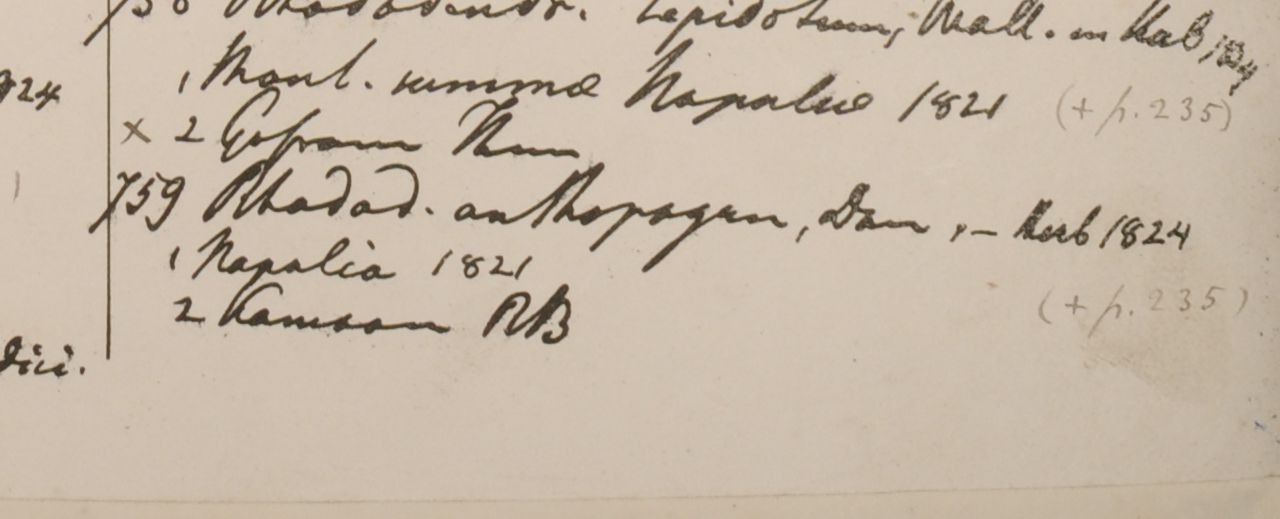 758 Rhododendr. lepidotum, Wall. in Herb 1824
1 Mont. summæ Napaliæ 1821 (+ p. 235)
x 2 Gosram Than
759 Rhodod. anthopogon, Don, – herb 1824
1 Napalia 1821
2 Kamaon RB (+ p. 235)
824
dici.